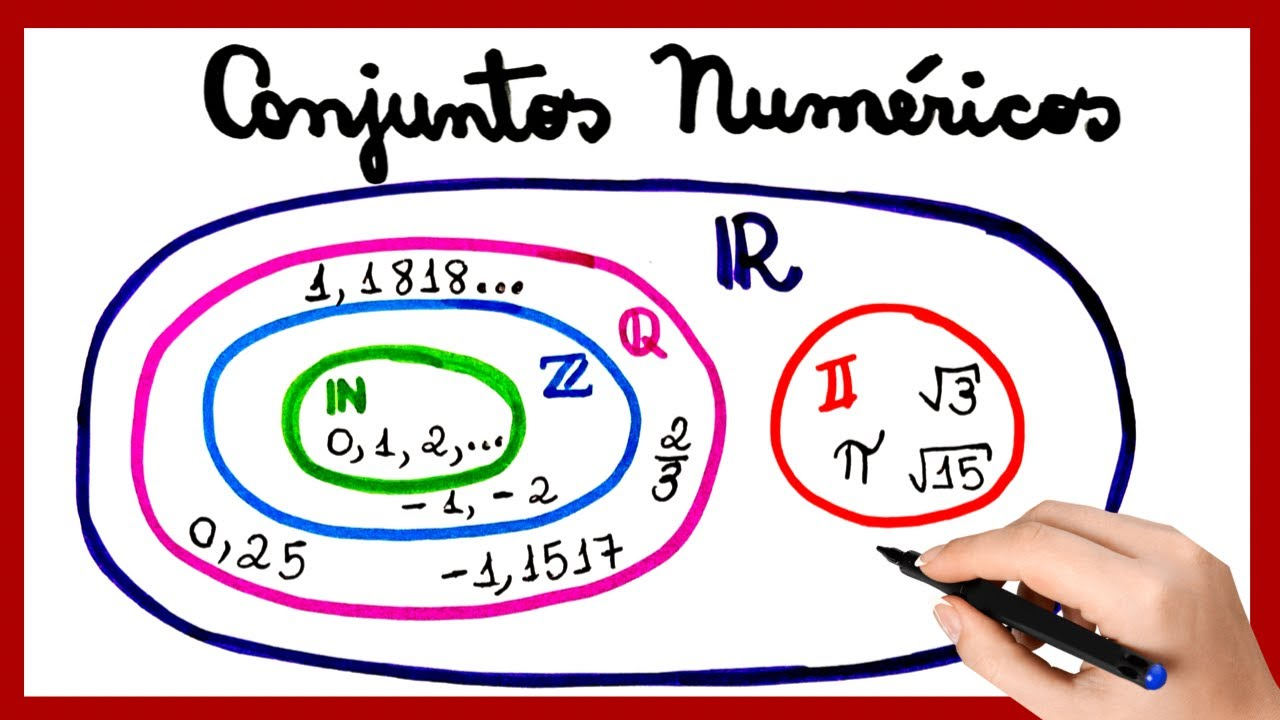 Conjuntos Numéricos
IR
1,1818...
Q
Z
IN
0,1,2,...
-1,-2
2
3
0,25
-1,1517
II
√3
π
√15